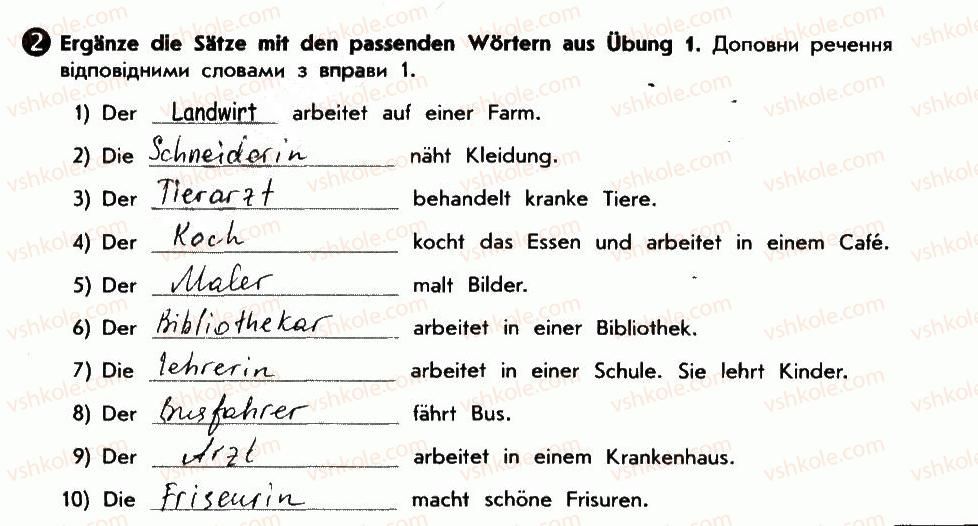 2 Ergänze die Sätze mit den passenden Wörtern aus Übung 1. Доповни речення
відповідними словами з вправи 1.
1) Der Landwirt arbeitet auf einer Farm.
2) Die Schneiderin näht Kleidung.
3) Der Tierarzt behandelt kranke Tiere.
4) Der Koch kocht das Essen und arbeitet in einem Café.
5) Der Maler malt Bilder.
6) Der Bibliothekar arbeitet in einer Bibliothek.
7) Die lehrerin arbeitet in einer Schule. Sie lehrt Kinder.
8) Der Busfahrer fährt Bus.
9) Der Arzt arbeitet in einem Krankenhaus.
10) Die Friseurin macht schöne Frisuren.